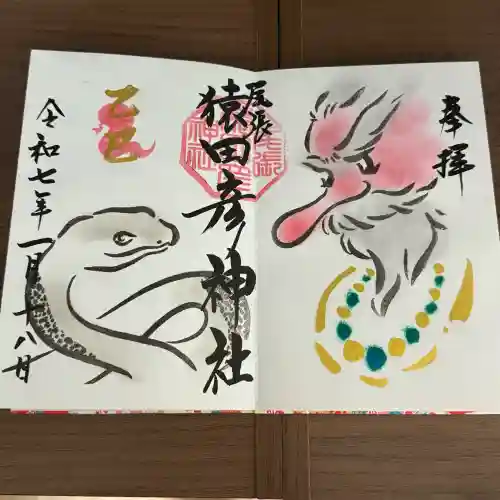 奉拝
尾張
猿田彦神社
乙巳
令和七年一月十八日